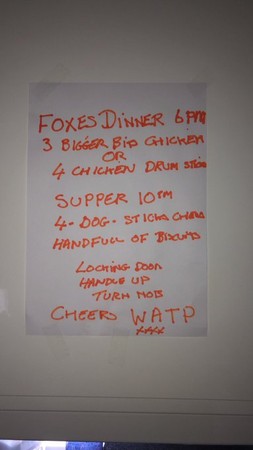 FOXES DINNER 6PM
3 BIGGER BIP CHICKEN
OR
4 CHICKEN DRUM STICKS
SUPPER 10PM
4-DOG-STICKS
HANDFULL OF BISCUITS
LOCKING DOOR
HANDLE UP
TURN NOB
CHEERS WATP
xxxx